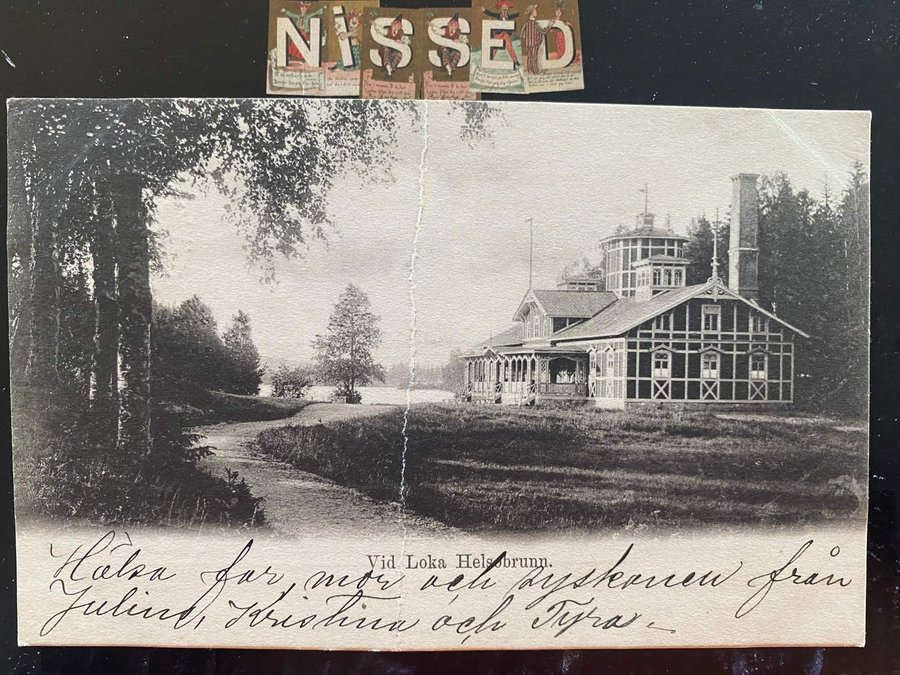 NiSSED
Vid Loka Helsobrunn.
Hälsa far, mor och syskonen från
Juline, Kristina och Tyra.